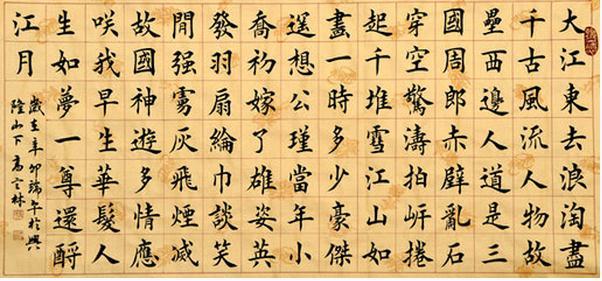 大江東去浪淘盡
千古風流人物故
壘西邊人道是三
國周郎赤壁亂石
穿空驚濤拍岍捲
起千堆雪江山如
畫一時多少豪傑
遥想公瑾當年小
喬初嫁了雄姿英
發羽扇綸巾談笑
間强虜灰飛煙滅
故國神遊多情應
咲我早生華髮人
生如夢一尊還酹
江月
歲在辛卯端午於興
隆山下高雲林